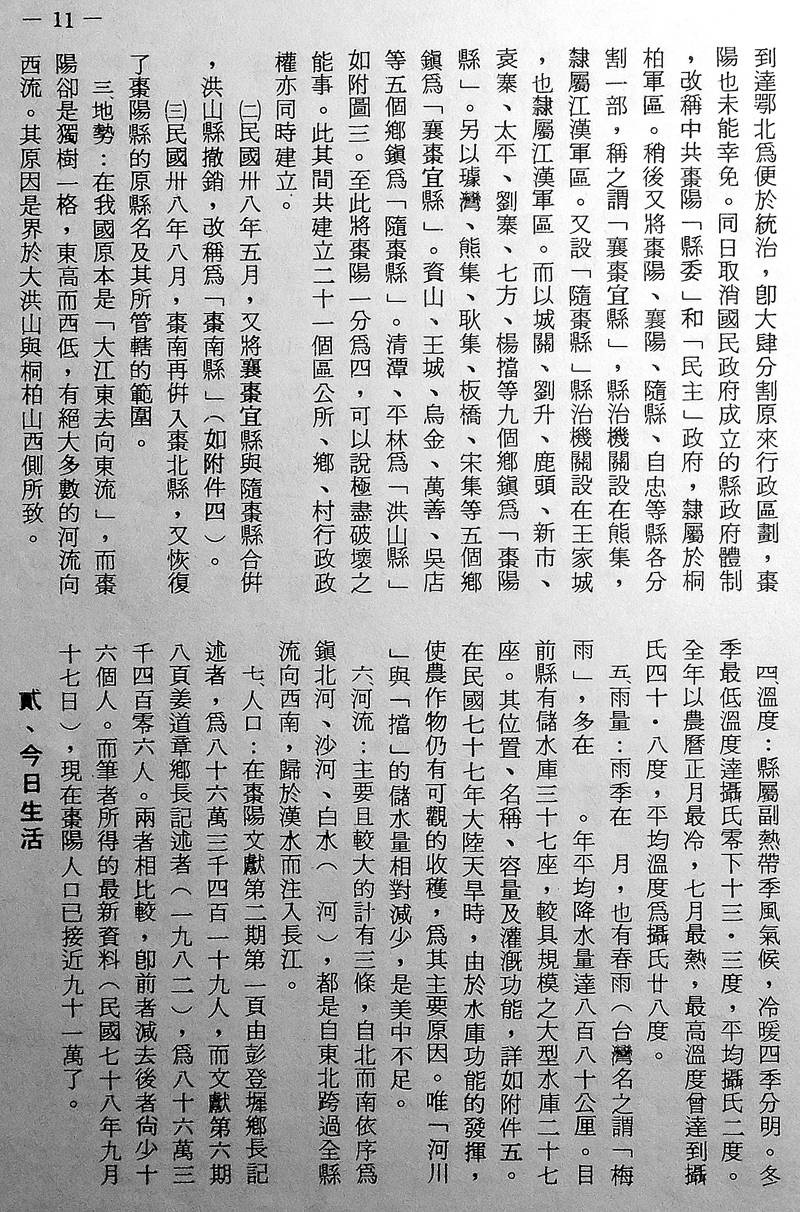 — 11 —
到達鄂北爲便於統治，卽大肆分割原來行政區劃，棗
陽也未能幸免。同日取消國民政府成立的縣政府體制
，改稱中共棗陽「縣委」和「民主」政府，隸屬於桐
柏軍區。稍後又將棗陽、襄陽、隨縣、自忠等縣各分
割一部，稱之謂「襄棗宜縣」，縣治機關設在熊集，
隸屬江漢軍區。又設「隨棗縣」縣治機關設在王家城
，也隸屬江漢軍區。而以城關、劉升、鹿頭、新市、
袁寨、太平、劉寨、七方、楊壋等九個鄉鎭爲「棗陽
縣」。另以璩灣、熊集、耿集、板橋、宋集等五個鄉
鎭爲「襄棗宜縣」。資山、王城、烏金、萬善、吳店
等五個鄉鎭爲「隨棗縣」。清潭、平林爲「洪山縣」
如附圖三。至此將棗陽一分爲四，可以說極盡破壞之
能事。此其間共建立二十一個區公所、鄉、村行政政
權亦同時建立。
㈡民國卅八年五月，又將襄棗宜縣與隨棗縣合併
，洪山縣撤銷，改稱爲「棗南縣」（如附件四）。
㈢民國卅八年八月，棗南再併入棗北縣，又恢復
了棗陽縣的原縣名及其所管轄的範圍。
三、地勢：在我國原本是「大江東去向東流」，而棗
陽卻是獨樹一格，東高而西低，有絕大多數的河流向
西流。其原因是界於大洪山與桐柏山西側所致。
四、溫度：縣屬副熱帶季風氣候，冷暖四季分明。冬
季最低溫度達攝氏零下十三・三度，平均攝氏二度。
全年以農曆正月最冷，七月最熱，最高溫度曾達到攝
氏四十・八度，平均溫度爲攝氏廿八度。
五、雨量：雨季在　月，也有春雨（台灣名之謂「梅
雨」，多在　　。年平均降水量達八百八十公厘。目
前縣有儲水庫三十七座，較具規模之大型水庫二十七
座。其位置、名稱、容量及灌漑功能，詳如附件五。
在民國七十七年大陸天旱時，由於水庫功能的發揮，
使農作物仍有可觀的收穫，爲其主要原因。唯「河川
」與「擋」的儲水量相對減少，是美中不足。
六、河流：主要且較大的計有三條，自北而南依序爲
鎭北河、沙河、白水（　河），都是自東北跨過全縣
流向西南，歸於漢水而注入長江。
七、人口：在棗陽文獻第二期第一頁由彭登墀鄉長記
述者，爲八十六萬三千四百一十九人，而文獻第六期
八頁姜道章鄉長記述者（一九八二），爲八十六萬三
千四百零六人。兩者相比較，卽前者減去後者尙少十
六個人。而筆者所得的最新資料（民國七十八年九月
十七日），現在棗陽人口已接近九十一萬了。
貳、今日生活